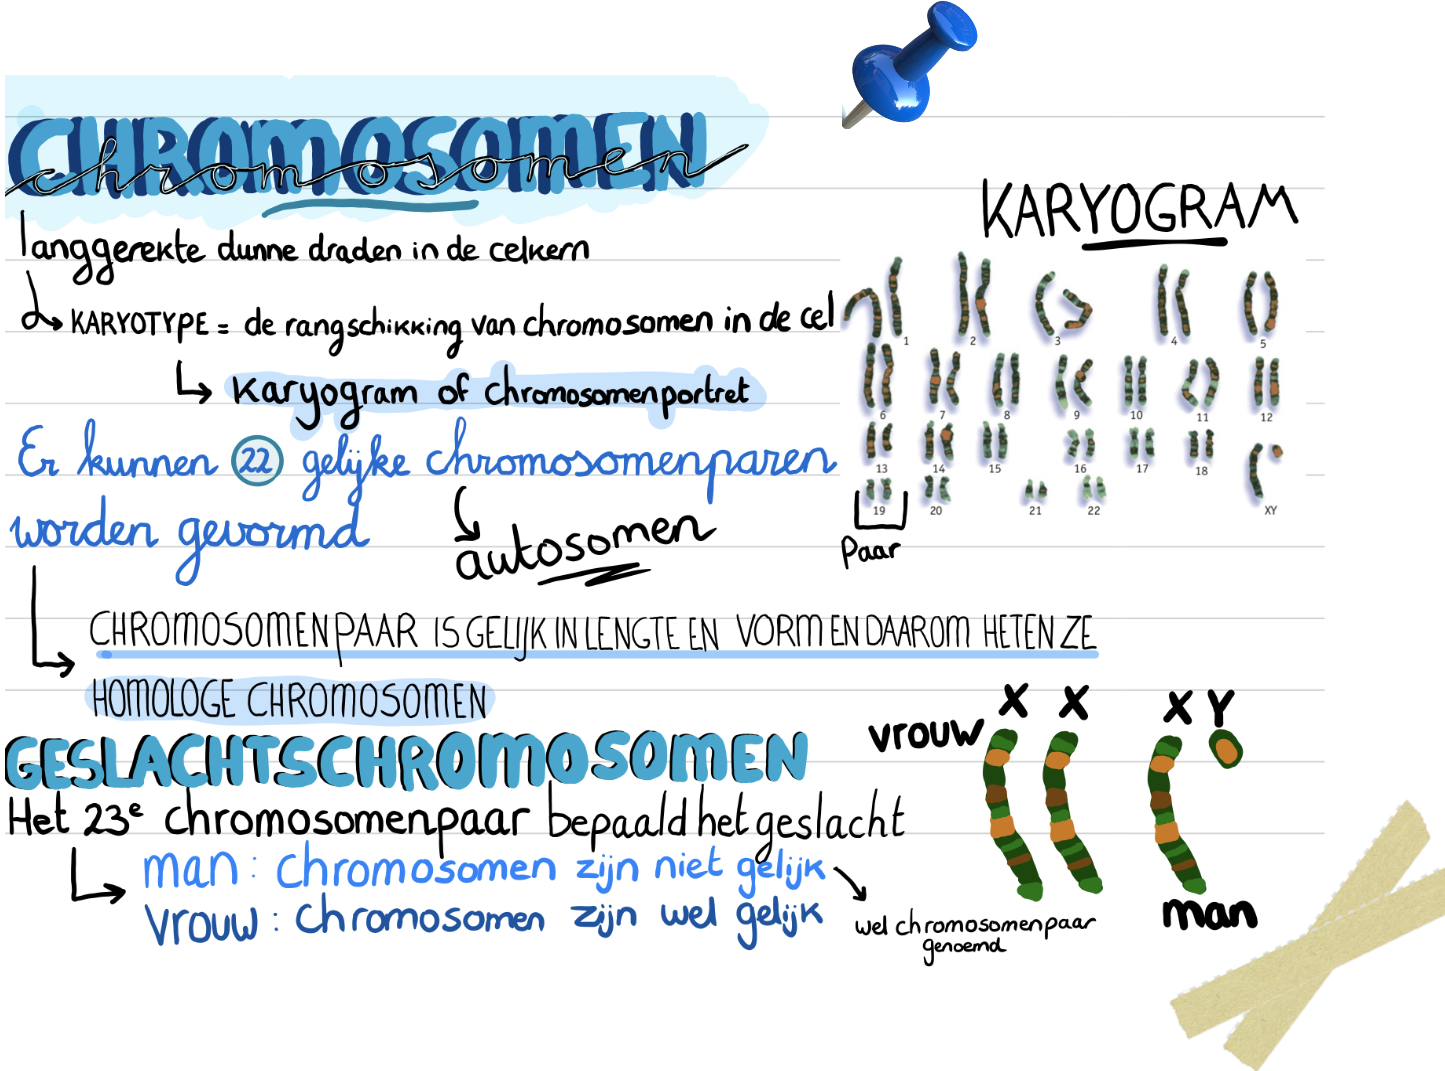 CHROMOSOMEN
chromosomen
langgerekte dunne draden in de celkern
KARYOTYPE = de rangschikking van chromosomen in de cel
karyogram of chromosomenportret
Er kunnen 22 gelijke chromosomenparen
worden gevormd
autosomen
CHROMOSOMENPAAR IS GELIJK IN LENGTE EN VORM EN DAAROM HETEN ZE
HOMOLOGE CHROMOSOMEN
KARYOGRAM
1 2 3 4 5
6 7 8 9 10 11 12
13 14 15 16 17 18
19 20 21 22 XY
Paar
GESLACHTSCHROMOSOMEN
Het 23e chromosomenpaar bepaald het geslacht
man: chromosomen zijn niet gelijk
vrouw: chromosomen zijn wel gelijk
wel chromosomenpaar
genoemd
X X X Y
vrouw
man